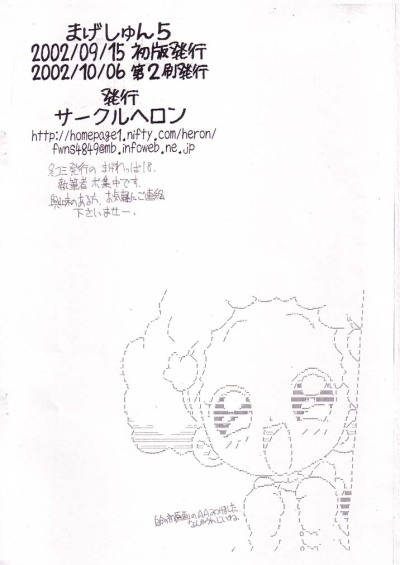 まげしゅん5
2002/09/15 初版発行
2002/10/06 第2刷発行
発行
サークルヘロン
http://homepage1.nifty.com/heron/
fwns4849@mb.infoweb.ne.jp
冬コミ発行の まげれっぱ18.
執筆者 ボ集中です.
興味のある方、お気軽にご連絡
下さいませー.
のAA